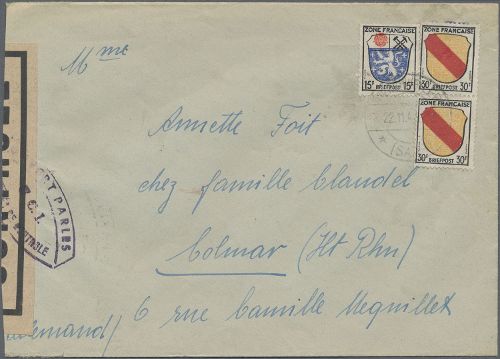 Mme
ZONE FRANÇAISE
15F BRIEFPOST 15F
ZONE FRANÇAISE
30F BRIEFPOST 30F
ZONE FRANÇAISE
30F BRIEFPOST 30F
22.11.
(SA
Annette Foit
chez famille Claudel
Colmar (Ht Rhin)
6 rue Camille Mequillet